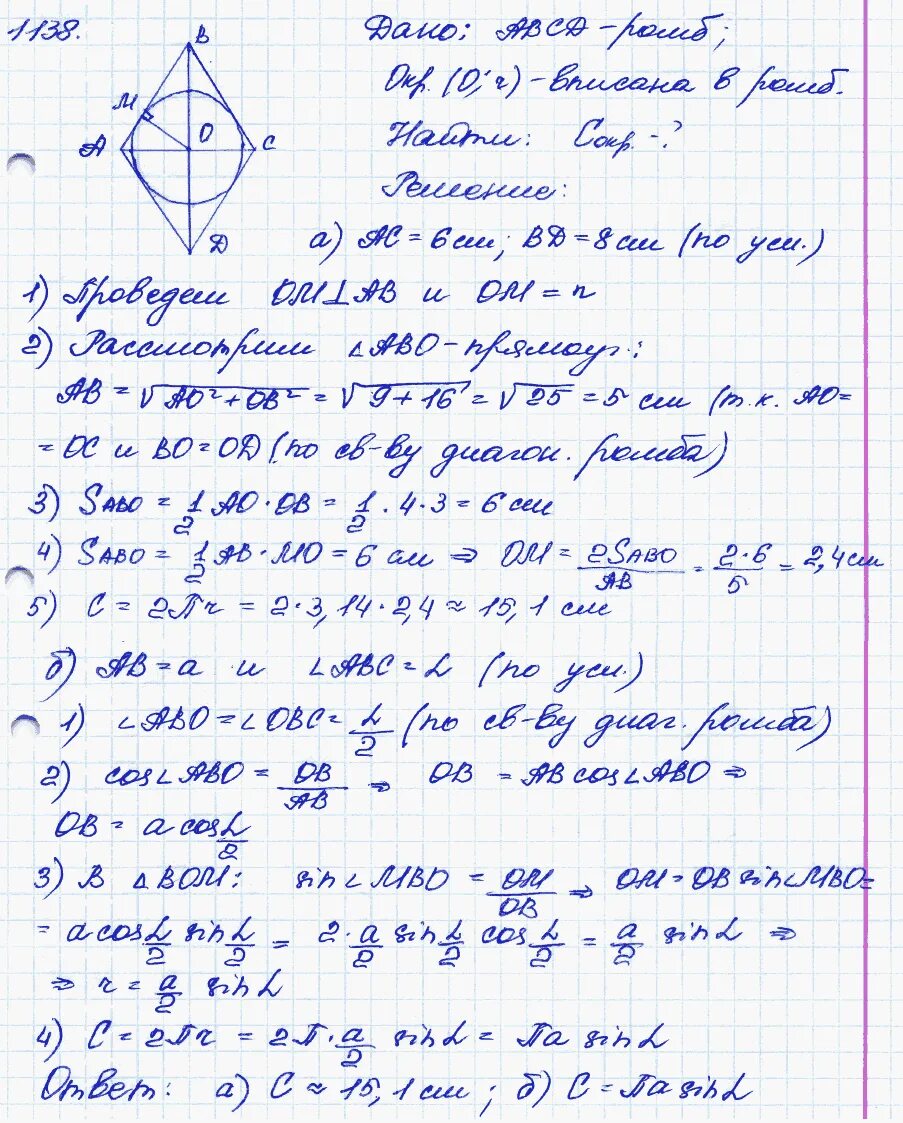 1138.
B
M
A
O
C
D
Дано: ABCD - ромб;
Окр. (O; r) - вписана в ромб.
Найти: Cокр. - ?
Решение:
а) AC = 6 см; BD = 8 см (по усл.)
1) Проведем OM ⊥ AB и OM = r
2) Рассмотрим ∠ABO - прямоуг.:
AB = √AO² + OB² = √9 + 16 = √25 = 5 см (т.к. AO =
= OC и BO = OD (по св-ву диагон. ромба)
3) SABO = 1/2 AO · OB = 1/2 · 4 · 3 = 6 см
4) SABO = 1/2 AB · MO = 6 см ⇒ OM = 2SABO/AB = 2·6/5 = 2,4 см
5) C = 2πr = 2 · 3,14 · 2,4 ≈ 15,1 см
б) AB = a и ∠ABC = α (по усл.)
1) ∠ABO = ∠OBC = α/2 (по св-ву диаг. ромба)
2) cos∠ABO = OB/AB ⇒ OB = AB cos∠ABO ⇒
OB = a cos α/2
3) В △BOM: sin∠MBO = OM/OB ⇒ OM = OB sin∠MBO =
= a cos α/2 sin α/2 = 2 · a/2 sin α/2 cos α/2 = a/2 sin α ⇒
⇒ r = a/2 sin α
4) C = 2πr = 2π · a/2 sin α = πa sin α
Ответ: а) C ≈ 15,1 см; б) C = πa sin α